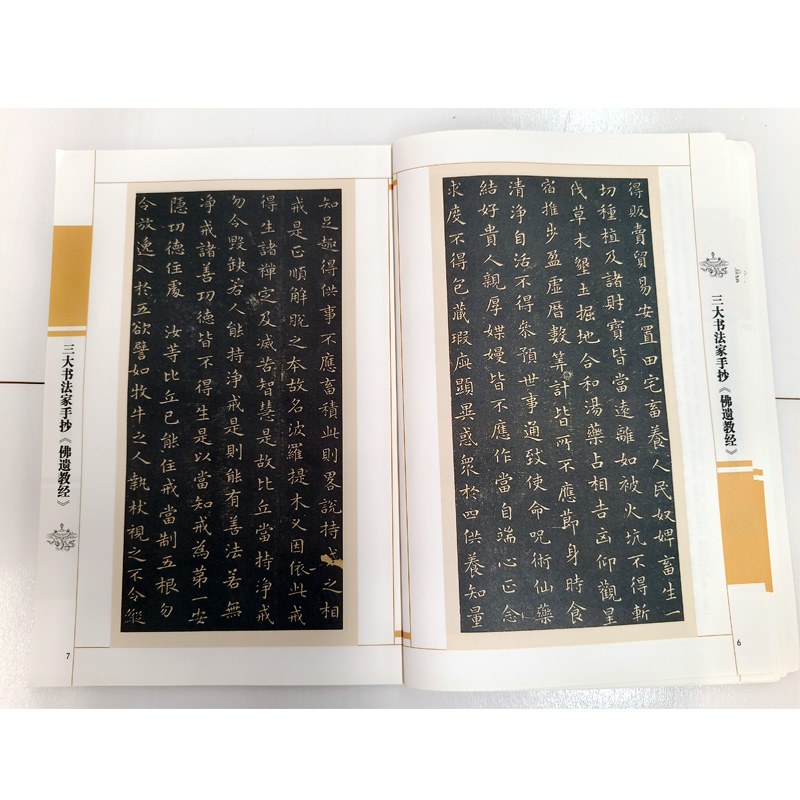 三大书法家手抄《佛遗教经》
得販賣貿易安置田宅畜養人民奴婢畜生一
切種植及諸財寶皆當遠離如被火坑不得斬
伐草木墾土掘地合和湯藥占相吉凶仰觀星
宿推步盈虛曆數筭計皆所不應節身時食
清淨自活不得參預世事通致使命呪術仙藥
結好貴人親厚媟嫚皆不應作當自端心正念
求度不得包藏瑕疵顯異惑衆於四供養知量
6
知足趣得供事不應畜積此則畧說持戒之相
戒是正順解脫之本故名波羅提木叉因依此戒
得生諸禪定及滅苦智慧是故比丘當持淨戒
勿令毀缺若人能持淨戒是則能有善法若無
淨戒諸善功德皆不得生是以當知戒為第一安
隱功德住處 汝等比丘已能住戒當制五根勿
令放逸入於五欲譬如牧牛之人執杖視之不令縱
三大书法家手抄《佛遗教经》
7